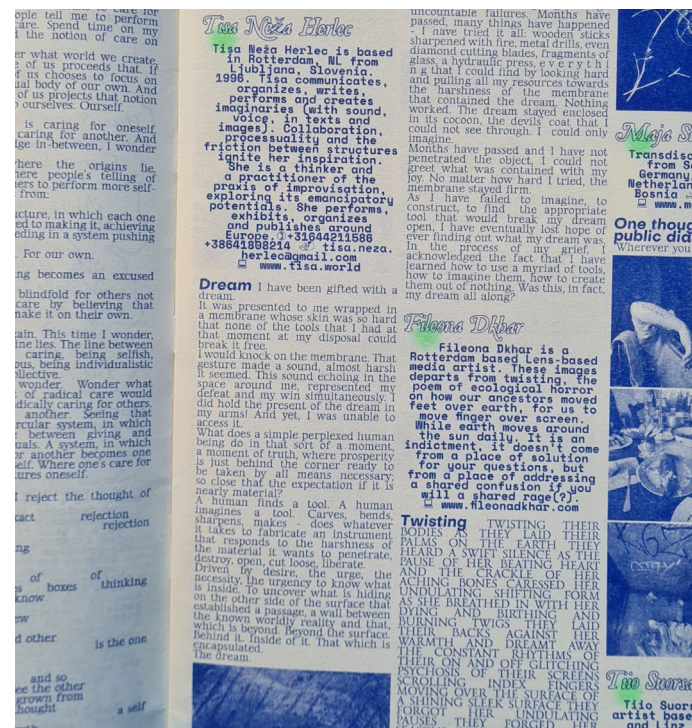 ople tell me to perform
care. Spend time on my
the notion of care on
er what world we create,
e of us proceeds that. If
f us chooses to focus on
ual body of our own. And
of us projects that notion
ourselves. Ourself.
is caring for oneself,
caring for another. And
ge in-between, I wonder
where the origins lie.
here people's telling of
ers to perform more self-
from:
ucture, in which each one
ed to making it, achieving
eding in a system pushing
. For our own.
ng becomes an excused
blindfold for others not
care by believing that
make it on their own.
ain. This time I wonder,
ine lies. The line between
caring, being selfish,
ous, being individualistic
llective.
wonder. Wonder what
of radical care would
dically caring for others.
another. Seeing that
rcular system, in which
between giving and
uals. A system, in which
or another becomes one
elf. Where one's care for
ures oneself.
I reject the thought of
act rejection
rejection
ng
of of
s boxes thinking
know
ew
d other is the one
and so
ee the other
grown from
thought a self
Tisa Neža Herlec
Tisa Neža Herlec is based
in Rotterdam, NL from
Ljubljana, Slovenia.
1996. Tisa communicates,
organizes, writes,
performs and creates
imaginaries (with sound,
voice, in texts and
images). Collaboration,
processuality and the
friction between structures
ignite her inspiration.
She is a thinker and
a practitioner of the
praxis of improvisation,
exploring its emancipatory
potentials. She performs,
exhibits, organizes
and publishes around
Europe. +31644211586
+38641808214 tisa.neza.
herlec@gmail.com
www.tisa.world
Dream I have been gifted with a
dream.
It was presented to me wrapped in
a membrane whose skin was so hard
that none of the tools that I had at
that moment at my disposal could
break it free.
I would knock on the membrane. That
gesture made a sound, almost harsh
it seemed. This sound echoing in the
space around me, represented my
defeat and my win simultaneously. I
did hold the present of the dream in
my arms! And yet, I was unable to
access it.
What does a simple perplexed human
being do in that sort of a moment,
a moment of truth, where prosperity
is just behind the corner ready to
be taken by all means necessary;
so close that the expectation if it is
nearly material?
A human finds a tool. A human
imagines a tool. Carves, bends,
sharpens, makes - does whatever
it takes to fabricate an instrument
that responds to the harshness of
the material it wants to penetrate,
destroy, open, cut loose, liberate.
Driven by desire, the urge, the
necessity, the urgency to know what
is inside. To uncover what is hiding
on the other side of the surface that
established a passage, a wall between
the known worldly reality and that,
which is beyond. Beyond the surface.
Behind it. Inside of it. That which is
encapsulated.
The dream.
uncountable failures. Months have
passed, many things have happened
- I have tried it all: wooden sticks
sharpened with fire, metal drills, even
diamond cutting blades, fragments of
glass, a hydraulic press, e v e r y t h i
n g that I could find by looking hard
and pulling all my resources towards
the harshness of the membrane
that contained the dream. Nothing
worked. The dream stayed enclosed
in its cocoon, the devils' coat that I
could not see through. I could only
imagine.
Months have passed and I have not
penetrated the object, I could not
greet what was contained with my
joy. No matter how hard I tried, the
membrane stayed firm.
As I have failed to imagine, to
construct, to find the appropriate
tool that would break my dream
open, I have eventually lost hope of
ever finding out what my dream was.
In the process of my grief, I
acknowledged the fact that I have
learned how to use a myriad of tools,
how to imagine them, how to create
them out of nothing. Was this, in fact,
my dream all along?
Fileona Dkhar
Fileona Dkhar is a
Rotterdam based Lens-based
media artist. These images
departs from twisting, the
poem of ecological horror
on how our ancestors moved
feet over earth, for us to
move finger over screen.
While earth moves around
the sun daily. It is an
indictment, it doesn't come
from a place of solution
for your questions, but
from a place of addressing
a shared confusion if you
will a shared rage(?).
www.fileonadkhar.com
Twisting TWISTING THEIR
BODIES AS THEY LAID THEIR
PALMS ON THE EARTH THEY
HEARD A SWIFT SILENCE AS THE
PAUSE OF HER BEATING HEART
AND THE CRACKLE OF HER
ACHING BONES CARESSED HER
UNDULATING SHIFTING FORM
AS SHE BREATHED IN WITH HER
DYING AND BIRTHING AND
BURNING TWIGS THEY LAID
THEIR BACKS AGAINST HER
WARMTH AND DREAMT AWAY
THE CONSTANT RHYTHMS OF
THEIR ON AND OFF GLITCHING
PSYCHOSIS OF THEIR SCREENS
SCROLLING INDEX FINGERS
MOVING OVER THE SURFACE OF
A SHINING SLEEK SURFACE THEY
FORGOT HER UNDULATING
Maja S
Transdisc
from S
Germany
Netherlan
Bosnia
www.m
One thoug
public did
Wherever you
Tiio Suorsa
Tiio Suor
artist base
and Linz